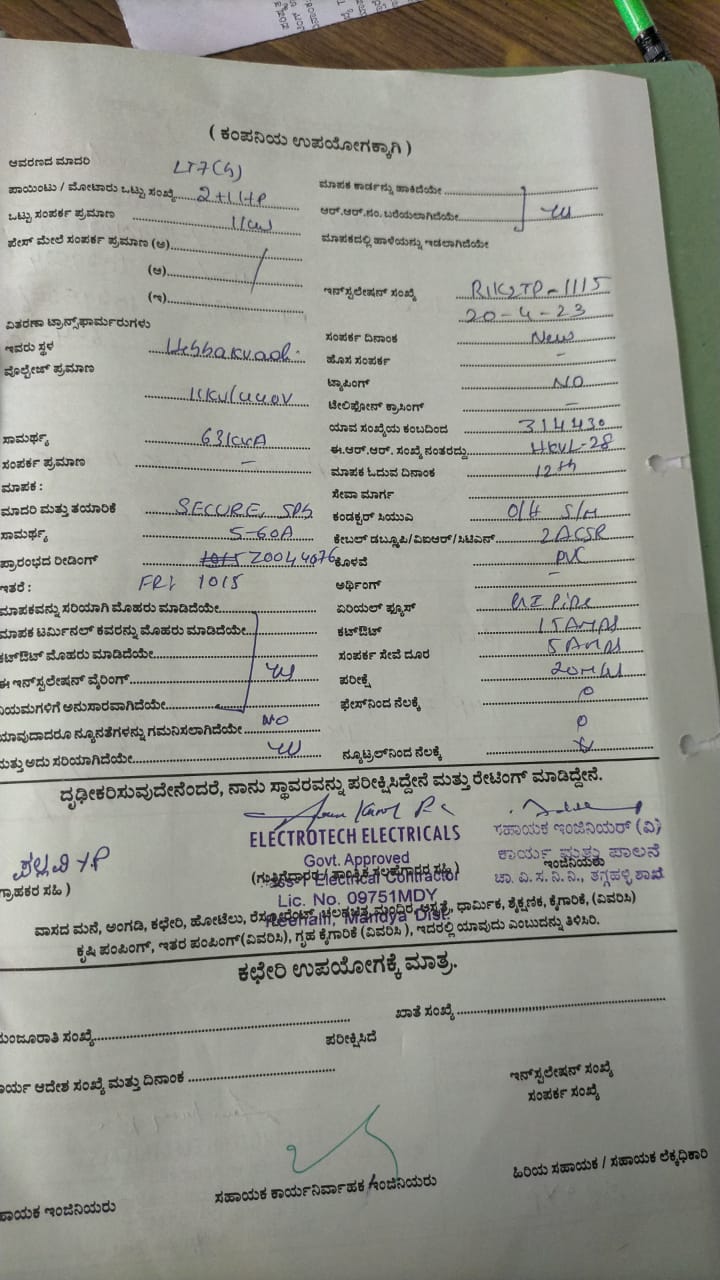 ( ಕಂಪನಿಯ ಉಪಯೋಗಕ್ಕಾಗಿ )
ಆವರಣದ ಮಾದರಿ LT7(4)
ಪಾಯಿಂಟು / ಮೋಟಾರು ಒಟ್ಟು ಸಂಖ್ಯೆ 2+1HP
ಒಟ್ಟು ಸಂಪರ್ಕ ಪ್ರಮಾಣ 1KW
ಫೇಸ್ ಮೇಲೆ ಸಂಪರ್ಕ ಪ್ರಮಾಣ (ಅ)
(ಆ)
(ಇ)
ವಿತರಣಾ ಟ್ರಾನ್ಸ್‌ಫಾರ್ಮರುಗಳು
ಇವರು ಸ್ಥಳ
ವೋಲ್ಟೇಜ್ ಪ್ರಮಾಣ
11KV/440V
ಸಾಮರ್ಥ್ಯ 63KVA
ಸಂಪರ್ಕ ಪ್ರಮಾಣ –
ಮಾಪಕ :
ಮಾದರಿ ಮತ್ತು ತಯಾರಿಕೆ SECURE,
ಸಾಮರ್ಥ್ಯ 5-60A
ಪ್ರಾರಂಭದ ರೀಡಿಂಗ್ 1015 Z0044076
ಇತರೆ : FR: 1015
ಮಾಪಕವನ್ನು ಸರಿಯಾಗಿ ಮೊಹರು ಮಾಡಿದೆಯೇ
ಮಾಪಕ ಟರ್ಮಿನಲ್ ಕವರನ್ನು ಮೊಹರು ಮಾಡಿದೆಯೇ
ಕಟ್‌ಔಟ್ ಮೊಹರು ಮಾಡಿದೆಯೇ
ಈ ಇನ್‌ಸ್ಟಲೇಷನ್ ವೈರಿಂಗ್
ನಿಯಮಗಳಿಗೆ ಅನುಸಾರವಾಗಿದೆಯೇ
ಯಾವುದಾದರೂ ನ್ಯೂನತೆಗಳನ್ನು ಗಮನಿಸಲಾಗಿದೆಯೇ NO
ಮತ್ತು ಅದು ಸರಿಯಾಗಿದೆಯೇ
ಮಾಪಕ ಕಾರ್ಡನ್ನು ಹಾಕಿದೆಯೇ
ಆರ್.ಆರ್.ನಂ. ಬರೆಯಲಾಗಿದೆಯೇ
ಮಾಪಕದಲ್ಲಿ ಹಾಳೆಯನ್ನು ಇಡಲಾಗಿದೆಯೇ
ಇನ್‌ಸ್ಟಲೇಷನ್ ಸಂಖ್ಯೆ
20-4-23
ಸಂಪರ್ಕ ದಿನಾಂಕ New
ಹೊಸ ಸಂಪರ್ಕ –
ಟ್ಯಾಪಿಂಗ್ NO
ಟೆಲಿಫೋನ್ ಕ್ರಾಸಿಂಗ್ –
ಯಾವ ಸಂಖ್ಯೆಯ ಕಂಬದಿಂದ 314430
ಈ.ಆರ್.ಆರ್. ಸಂಖ್ಯೆ ನಂತರದ್ದು HKVL-28
ಮಾಪಕ ಓದುವ ದಿನಾಂಕ 12th
ಸೇವಾ ಮಾರ್ಗ
ಕಂಡಕ್ಟರ್ ಸಿಯುವಿ O/H S/M
ಕೇಬಲ್ ಡಬ್ಲ್ಯೂಪಿ/ವಿಐಆರ್/ಸಿಟಿಎನ್ 2ACSR
ಕೊಳವೆ PVC
ಅರ್ಥಿಂಗ್ –
ಏರಿಯಲ್ ಫ್ಯೂಸ್ GI Pipe
ಕಟ್‌ಔಟ್ 15AMPS
ಸಂಪರ್ಕ ಸೇವೆ ದೂರ 5AMPS
ಪರೀಕ್ಷೆ
ಫೇಸ್‌ನಿಂದ ನೆಲಕ್ಕೆ 0
0
ನ್ಯೂಟ್ರಲ್‌ನಿಂದ ನೆಲಕ್ಕೆ
ದೃಢೀಕರಿಸುವುದೇನೆಂದರೆ, ನಾನು ಸ್ಥಾವರವನ್ನು ಪರೀಕ್ಷಿಸಿದ್ದೇನೆ ಮತ್ತು ರೇಟಿಂಗ್ ಮಾಡಿದ್ದೇನೆ.
ಪಲ್ಲವಿ Y.P
ಗ್ರಾಹಕರ ಸಹಿ )
ELECTROTECH ELECTRICALS
Govt. Approved
(ಗುತ್ತಿಗೆದಾರರ / ತಾಂತ್ರಿಕ ಸಲಹೆಗಾರರ ಸಹಿ )
Class-1 Electrical Contractor
Lic. No. 09751MDY
Mandya Dist.
ಸಹಾಯಕ ಇಂಜಿನಿಯರ್ (ವಿ)
ಕಾರ್ಯ ಮತ್ತು ಪಾಲನೆ
ಇಂಜಿನಿಯರು
ಚಾ.ವಿ.ಸ.ನಿ.ನಿ., ತಗ್ಗಹಳ್ಳಿ ಶಾಖೆ
ವಾಸದ ಮನೆ, ಅಂಗಡಿ, ಕಛೇರಿ, ಹೋಟೆಲು, ರೆಸ್ಟೋರೆಂಟ್, ಚಲನಚಿತ್ರ ಮಂದಿರ, ಆಸ್ಪತ್ರೆ, ಧಾರ್ಮಿಕ, ಶೈಕ್ಷಣಿಕ, ಕೈಗಾರಿಕೆ, (ವಿವರಿಸಿ)
ಕೃಷಿ ಪಂಪಿಂಗ್, ಇತರ ಪಂಪಿಂಗ್(ವಿವರಿಸಿ), ಗೃಹ ಕೈಗಾರಿಕೆ (ವಿವರಿಸಿ ), ಇದರಲ್ಲಿ ಯಾವುದು ಎಂಬುದನ್ನು ತಿಳಿಸಿರಿ.
ಕಛೇರಿ ಉಪಯೋಗಕ್ಕೆ ಮಾತ್ರ.
ಮಂಜೂರಾತಿ ಸಂಖ್ಯೆ
ಖಾತೆ ಸಂಖ್ಯೆ
ಪರೀಕ್ಷಿಸಿದೆ
ಕಾರ್ಯ ಆದೇಶ ಸಂಖ್ಯೆ ಮತ್ತು ದಿನಾಂಕ
ಇನ್‌ಸ್ಟಲೇಷನ್ ಸಂಖ್ಯೆ
ಸಂಪರ್ಕ ಸಂಖ್ಯೆ
ಸಹಾಯಕ ಇಂಜಿನಿಯರು
ಸಹಾಯಕ ಕಾರ್ಯನಿರ್ವಾಹಕ ಇಂಜಿನಿಯರು
ಹಿರಿಯ ಸಹಾಯಕ / ಸಹಾಯಕ ಲೆಕ್ಕಧಿಕಾರಿ